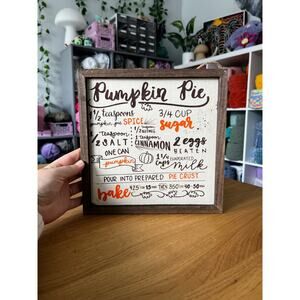 Pumpkin Pie
1 1/2 teaspoons 3/4 CUP
pumpkin pie SPICE sugar
1/2 teaspoon 1/2 teaspoon 2 eggs
SALT CINNAMON BEATEN
ONE CAN 1 1/4 EVAPORATED
pumpkin cups milk
POUR INTO PREPARED PIE CRUST
bake 425 for 15 min then 350 for 40-50 min